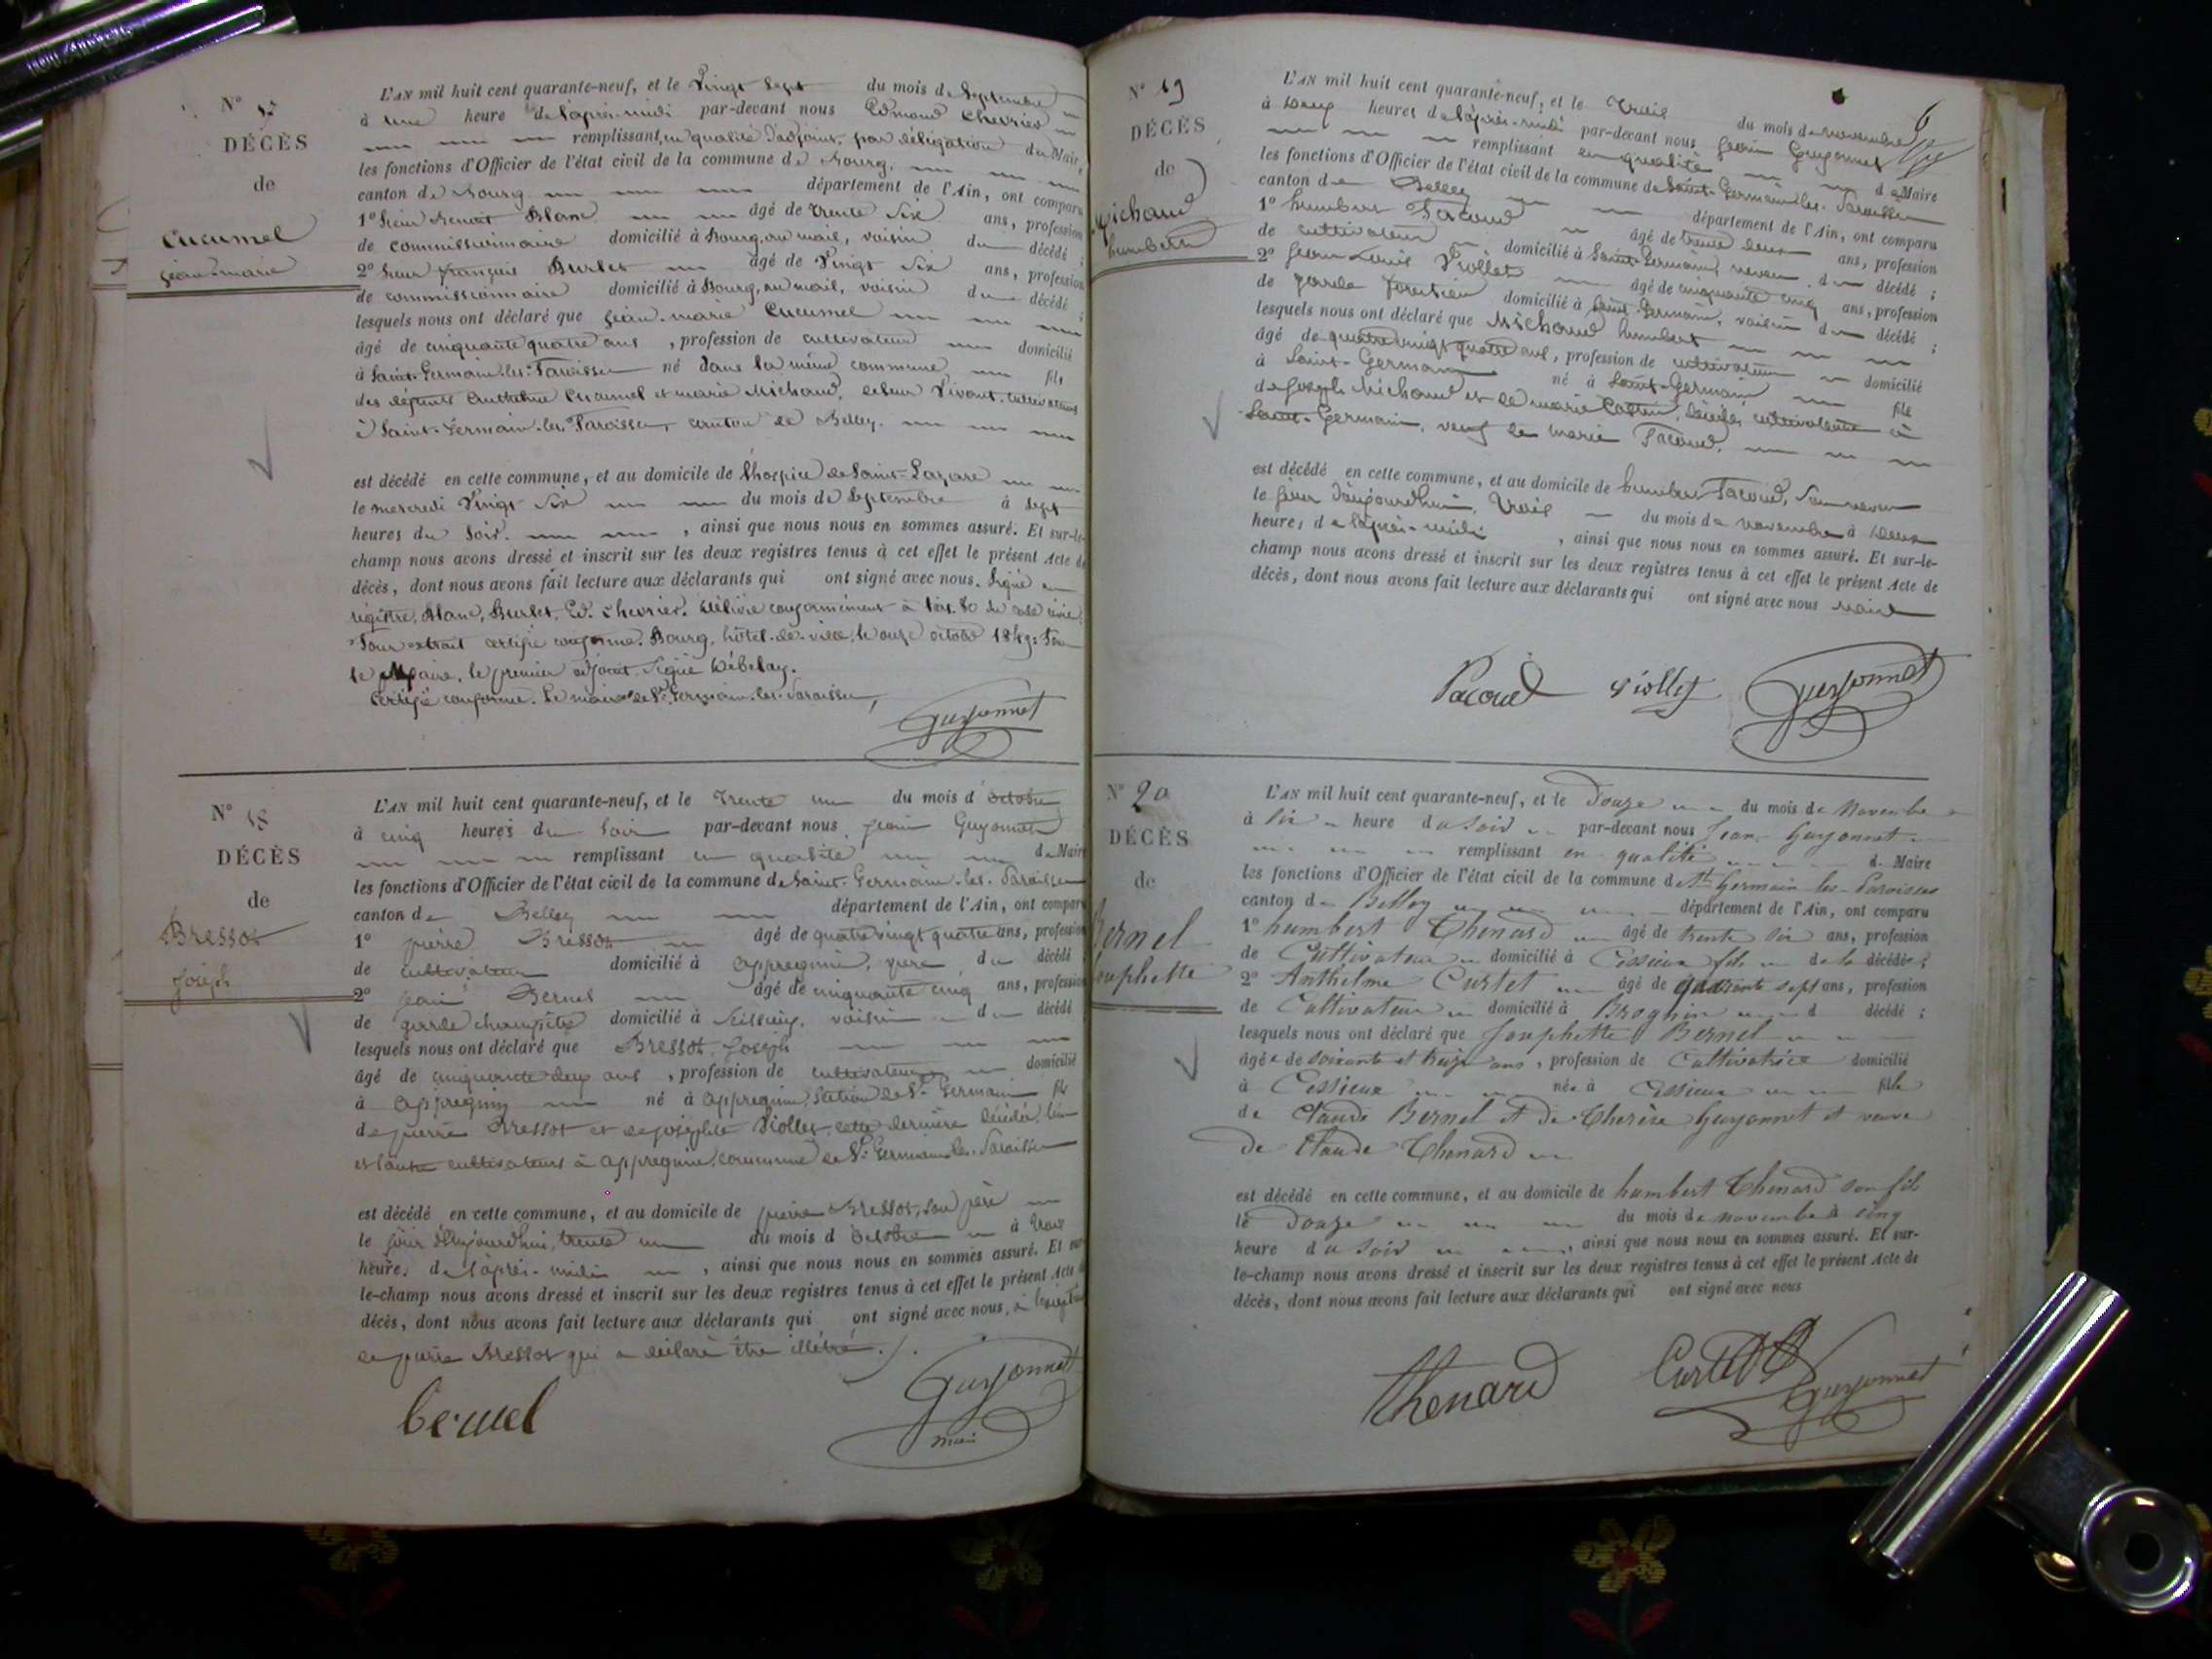 N° 17
DÉCÈS
de
Cucumel
jean-marie
L'AN mil huit cent quarante-neuf, et le Vingt sept du mois de Septembre
à une heure de l'après-midi par-devant nous Edmond Chevrier
remplissant, en qualité d'adjoint, par délégation du Maire,
les fonctions d'Officier de l'état civil de la commune de Bourg,
canton de Bourg département de l'Ain, ont comparu
1° Benoit Blanc âgé de trente six ans, profession
de commissionnaire domicilié à Bourg, au mail, voisin du décédé ;
2° françois Burlet âgé de Vingt six ans, profession
de commissionnaire domicilié à Bourg, au mail, voisin du décédé ;
lesquels nous ont déclaré que jean-marie Cucumel
âgé de cinquante quatre ans, profession de cultivateur domicilié
à Saint-Germain-les-Paroisses né dans la même commune fils
des défunts Anthelme Cucumel et marie Michaud, de leur Vivant cultivateurs
à Saint-Germain-les-Paroisses, canton de Belley.
est décédé en cette commune, et au domicile de l'hospice de Saint-Lazare
le mercredi Vingt six du mois de Septembre à sept
heures du soir. , ainsi que nous nous en sommes assuré. Et sur-le-
champ nous avons dressé et inscrit sur les deux registres tenus à cet effet le présent Acte de
décès, dont nous avons fait lecture aux déclarants qui ont signé avec nous. Signé au
registre, Blanc, Burlet, Ed. Chevrier. Délivré conformément à l'art. 80 du code civil.
Pour extrait certifié conforme. Bourg, hôtel-de-ville, le onze octobre 1849. Pour
le Maire, le premier adjoint. Signé Débelay.
Certifié conforme. Le maire de St Germain-les-Paroisses,
Guyonnet
N° 18
DÉCÈS
de
Bressot
Joseph
L'AN mil huit cent quarante-neuf, et le trente un du mois d'octobre
à cinq heures du soir par-devant nous jean Guyonnet
remplissant en qualité de Maire
les fonctions d'Officier de l'état civil de la commune de Saint-Germain-les-Paroisses
canton de Belley département de l'Ain, ont comparu
1° pierre Bressot âgé de quatre vingt quatre ans, profession
de cultivateur domicilié à appregnin, père du décédé
2° jean Bernel âgé de cinquante cinq ans, profession
de garde champêtre domicilié à voisin du décédé
lesquels nous ont déclaré que Bressot Joseph
âgé de cinquante deux ans, profession de cultivateur domicilié
à appregnin né à appregnin, section de St Germain fils
de pierre Bressot et de josephte Viollet, cette dernière décédée, l'un
et l'autre cultivateurs à appregnin, commune de St Germain-les-Paroisses
est décédé en cette commune, et au domicile de pierre Bressot, son père
le jour d'aujourd'hui, trente un du mois d'octobre à trois
heures de l'après-midi , ainsi que nous nous en sommes assuré. Et sur-
le-champ nous avons dressé et inscrit sur les deux registres tenus à cet effet le présent Acte de
décès, dont nous avons fait lecture aux déclarants qui ont signé avec nous, à l'exception
de pierre Bressot qui a déclaré être illétré.
bernel
Guyonnet
maire
N° 19
DÉCÈS
de
Michaud
humbert
L'AN mil huit cent quarante-neuf, et le trois du mois de novembre
à deux heures de l'après-midi par-devant nous jean Guyonnet
remplissant en qualité de Maire
les fonctions d'Officier de l'état civil de la commune de Saint-Germain-les-Paroisses
canton de Belley département de l'Ain, ont comparu
1° humbert Pacoud âgé de trente deux ans, profession
de cultivateur domicilié à Saint-Germain, neveu du décédé ;
2° jean Louis Viollet âgé de cinquante cinq ans, profession
de garde forestier domicilié à Saint-Germain, voisin du décédé ;
lesquels nous ont déclaré que Michaud humbert
âgé de quatre vingt quatre ans, profession de cultivateur domicilié
à Saint-Germain né à Saint-Germain fils
de joseph Michaud et de marie décédés, cultivateurs à
Saint-Germain, veuf de marie Pacoud,
est décédé en cette commune, et au domicile de humbert Pacoud, son neveu
le jour d'aujourd'hui, trois du mois de novembre à deux
heures de l'après-midi , ainsi que nous nous en sommes assuré. Et sur-le-
champ nous avons dressé et inscrit sur les deux registres tenus à cet effet le présent Acte de
décès, dont nous avons fait lecture aux déclarants qui ont signé avec nous maire
Pacoud Viollet Guyonnet
N° 20
DÉCÈS
de
Bernel
Jouphette
L'AN mil huit cent quarante-neuf, et le Douze du mois de Novembre
à six heure du soir par-devant nous Jean Guyonnet
remplissant en qualité de Maire
les fonctions d'Officier de l'état civil de la commune de St Germain les Paroisses
canton de Belley département de l'Ain, ont comparu
1° humbert Thenard âgé de trente six ans, profession
de Cultivateur domicilié à Cessieux fils de la décédée ;
2° Anthelme Curtet âgé de quarante sept ans, profession
de Cultivateur domicilié à Brognin d décédé ;
lesquels nous ont déclaré que Jouphette Bernel
âgée de soixante et treize ans, profession de Cultivatrice domicilié
à Cessieux née à Cessieux fille
de Claude Bernel et de Therèse Guyonnet et veuve
de Claude Thenard
est décédé en cette commune, et au domicile de humbert Thenard son fils
le Douze du mois de novembre à cinq
heure du soir , ainsi que nous nous en sommes assuré. Et sur-
le-champ nous avons dressé et inscrit sur les deux registres tenus à cet effet le présent Acte de
décès, dont nous avons fait lecture aux déclarants qui ont signé avec nous
Thenard Curtet Guyonnet